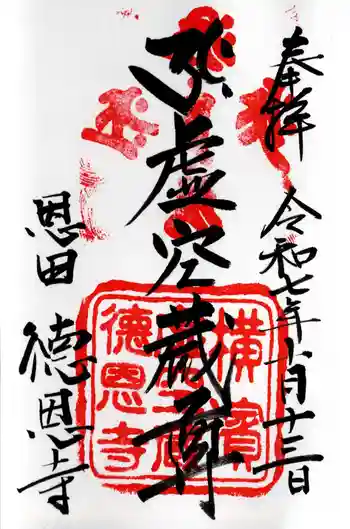 奉拝
令和七年十月十三日
虚空蔵尊
恩田
徳恩寺
横濱
徳恩寺